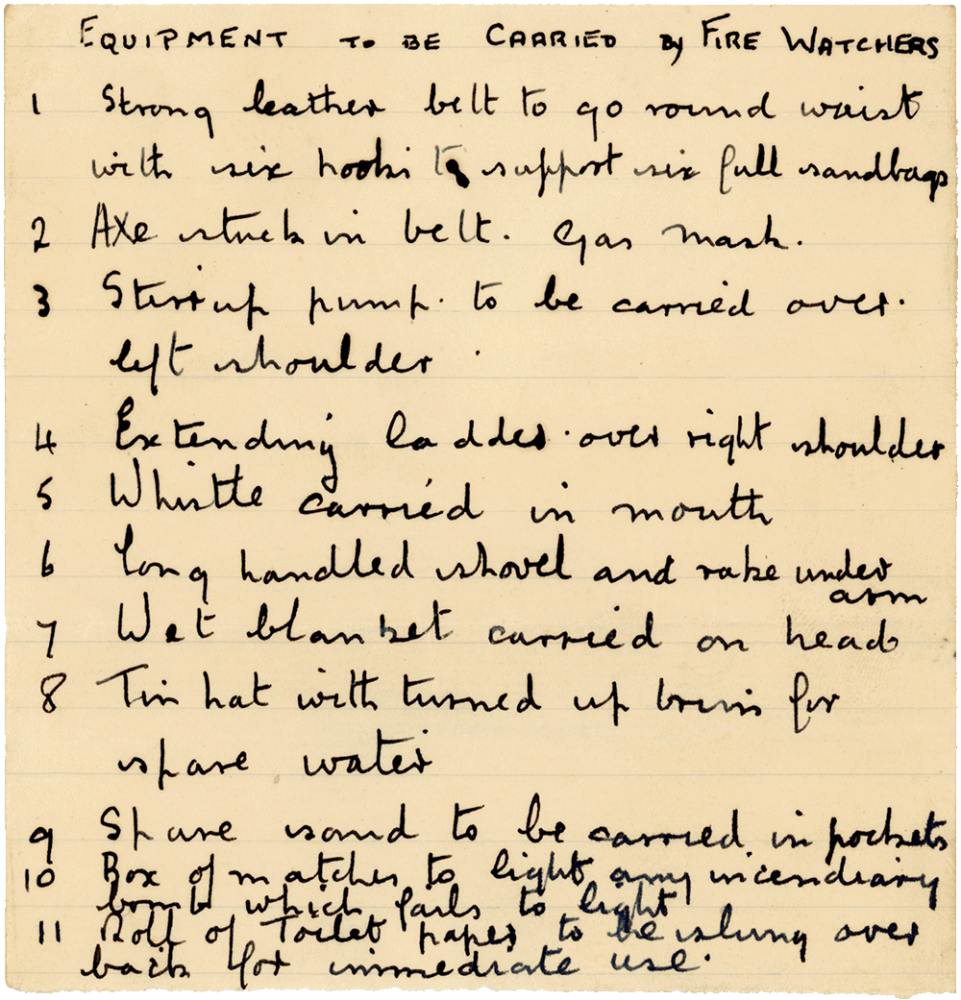 EQUIPMENT TO BE CARRIED By FIRE WATCHERS
1 Strong leather belt to go round waist
with six hooks to support six full sandbags
2 Axe stuck in belt. Gas mask.
3 Stirrup pump. to be carried over.
left shoulder.
4 Extending ladder. over right shoulder
5 Whistle carried in mouth
6 Long handled shovel and rake under
arm
7 Wet blanket carried on head
8 Tin hat with turned up brim for
spare water
9 Spare sand to be carried in pockets
10 Box of matches to light any incendiary
bomb which fails to light
11 Roll of Toilet paper to be slung over
back for immediate use.